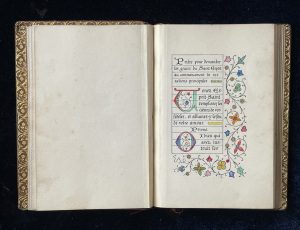 Prière pour demander
les graces du Saint-Esprit
au commencement de ses
actions principales
Venez, ô Es-
prit-Saint,
remplissez les
cœurs de vos
fidèles, et allumez-y le feu
de votre amour.
Prions.
O Dieu qui
avez ins-
truit les